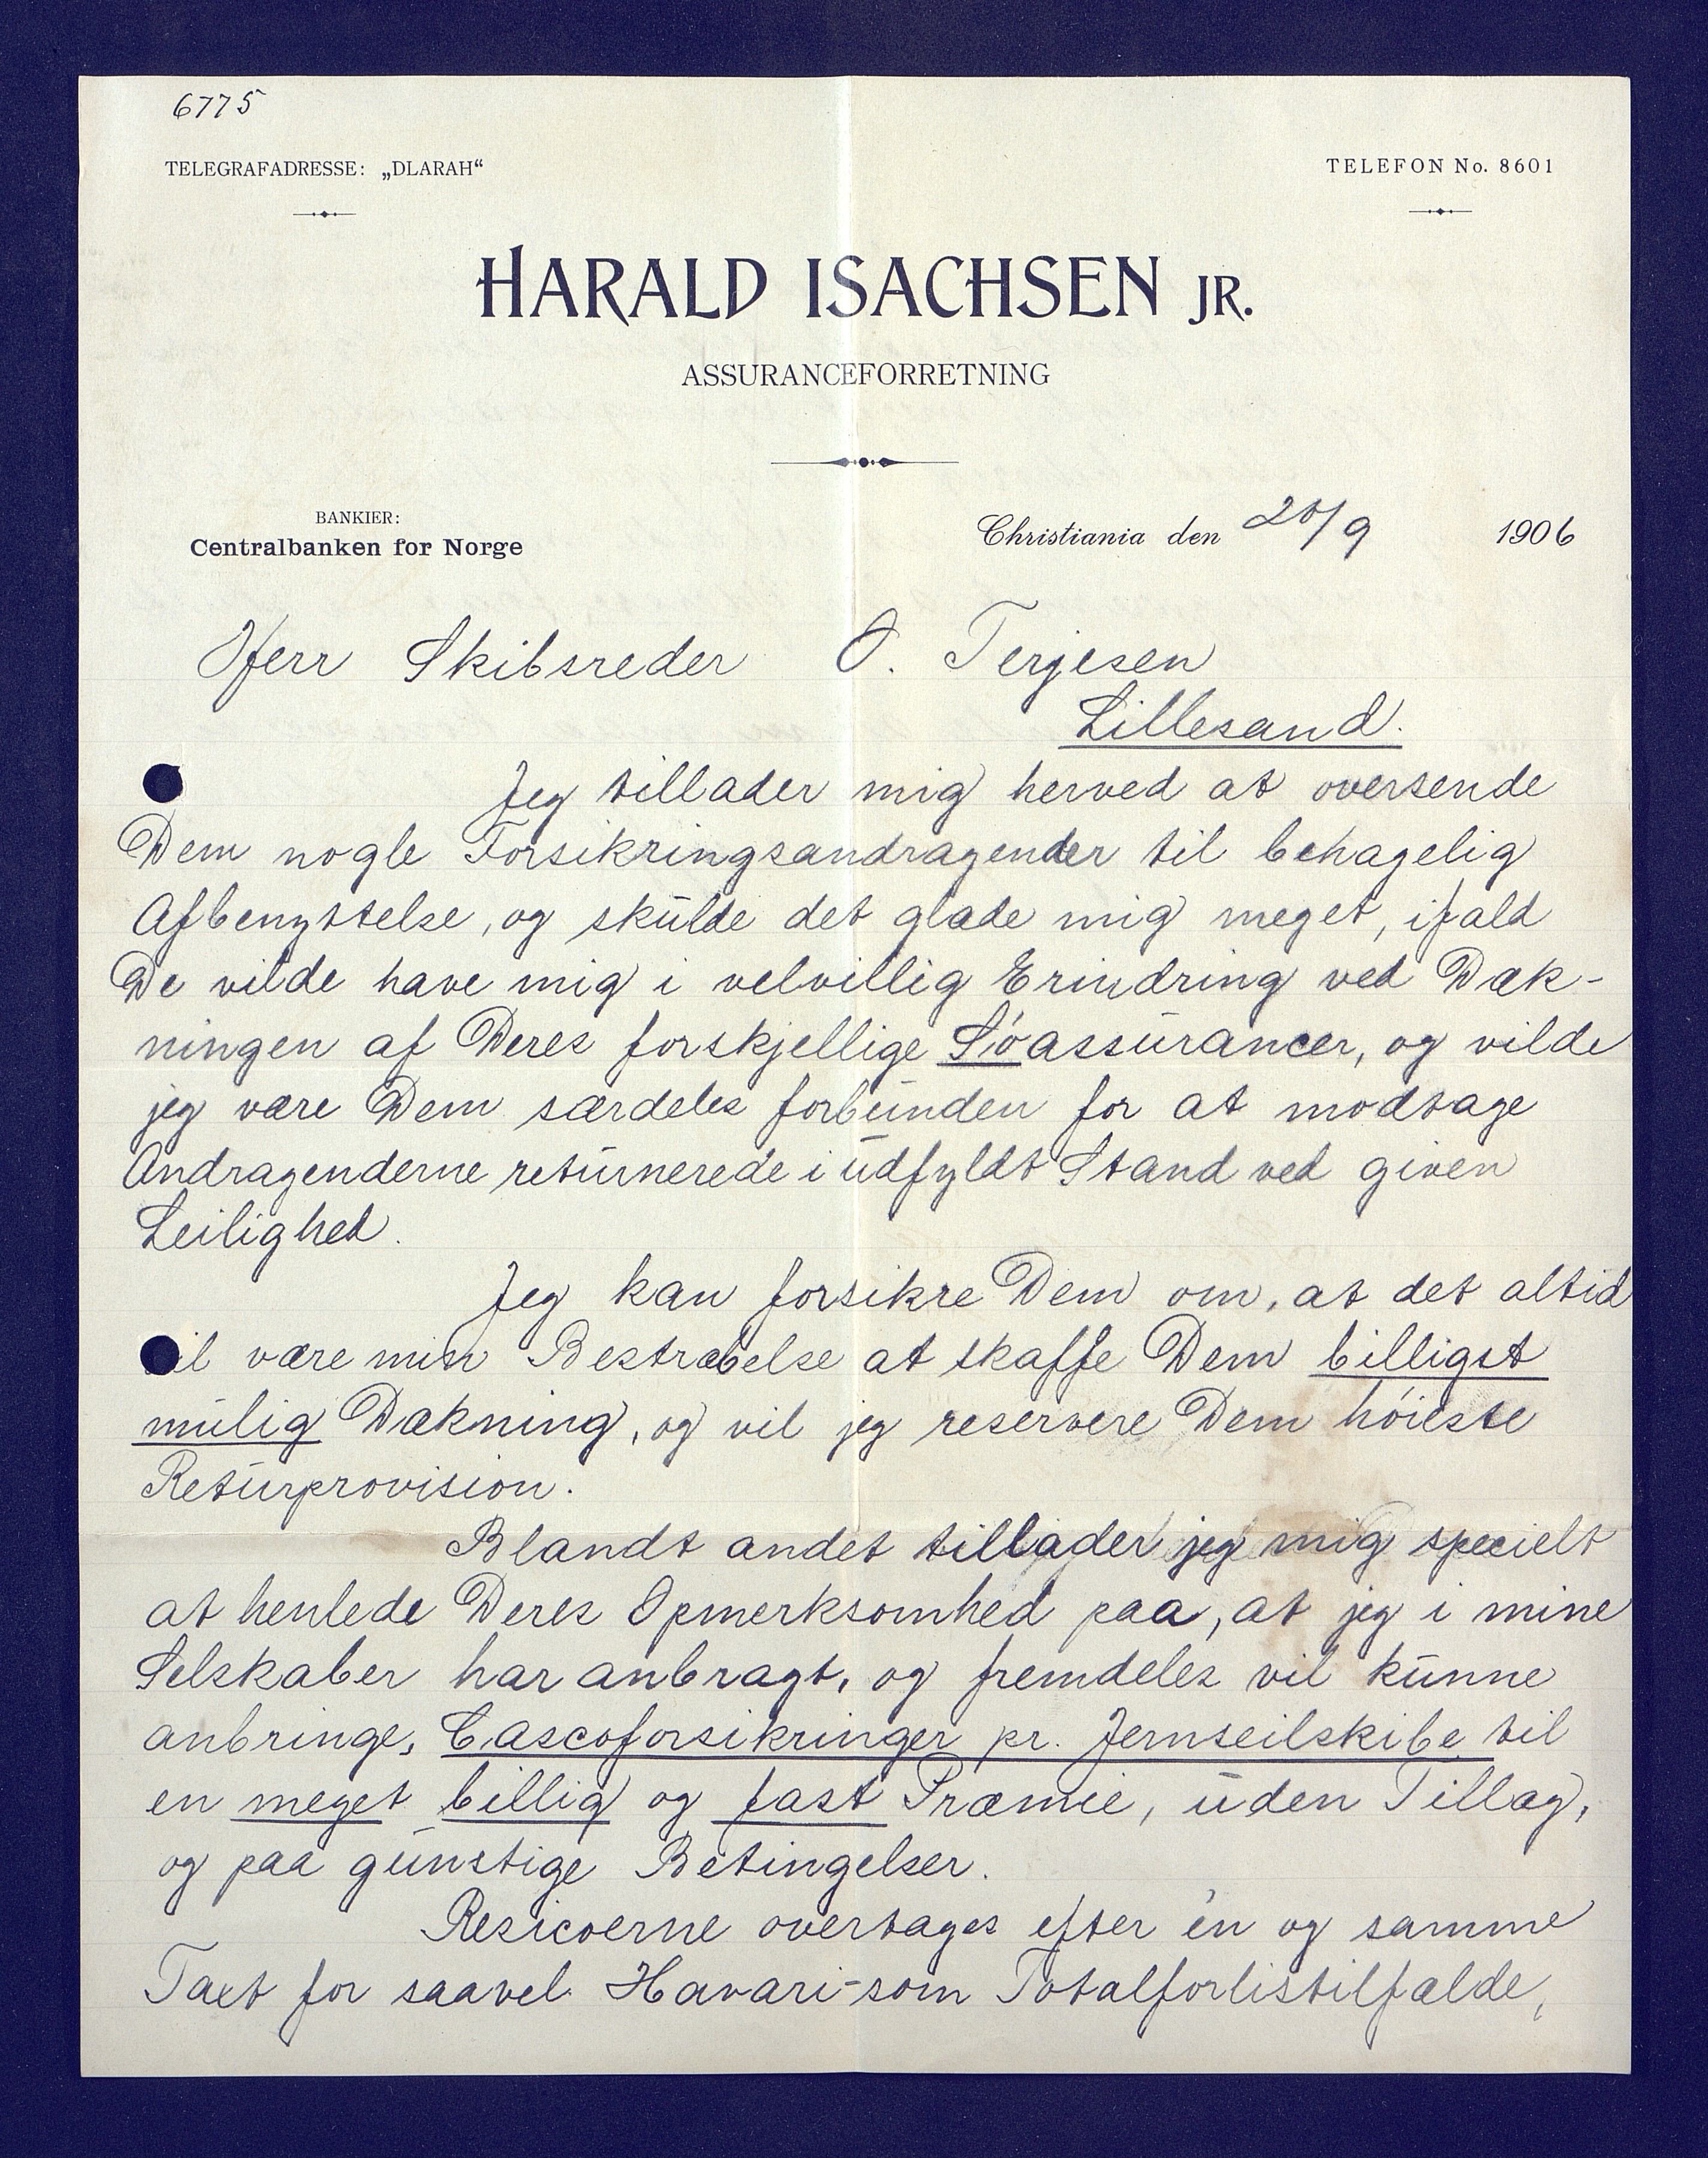 6775
TELEGRAFADRESSE: „DLARAH“
TELEFON No. 8601
HARALD ISACHSEN JR.
ASSURANCEFORRETNING
BANKIER:
Centralbanken for Norge
Christiania den 20/9 1906
Herr Skibsreder O. Terjesen
Lillesand.
Jeg tillader mig herved at oversende
Dem nogle Forsikringsandragender til behagelig
Afbenyttelse, og skulde det glæde mig meget, ifald
De vilde have mig i velvillig Erindring ved Dæk-
ningen af Deres forskjellige Søassurancer, og vilde
jeg være Dem særdeles forbunden for at modtage
Andragenderne returnerede i udfyldt Stand ved given
Leilighed.
Jeg kan forsikre Dem om, at det altid
il være min Bestræbelse at skaffe Dem billigst
mulig Dækning, og vil jeg reservere Dem høieste
Returprovision.
Blandt andet tillader jeg mig specielt
at henlede Deres Opmerksomhed paa, at jeg i mine
Selskaber har anbragt, og fremdeles vil kunne
anbringe, Cascoforsikringer pr. Jernseilskibe til
en meget billig og fast Præmie, uden Tillæg,
og paa gunstige Betingelser.
Resicoerne overtages efter én og samme
Taxt for saavel Havari- som Totalforlistilfælde,